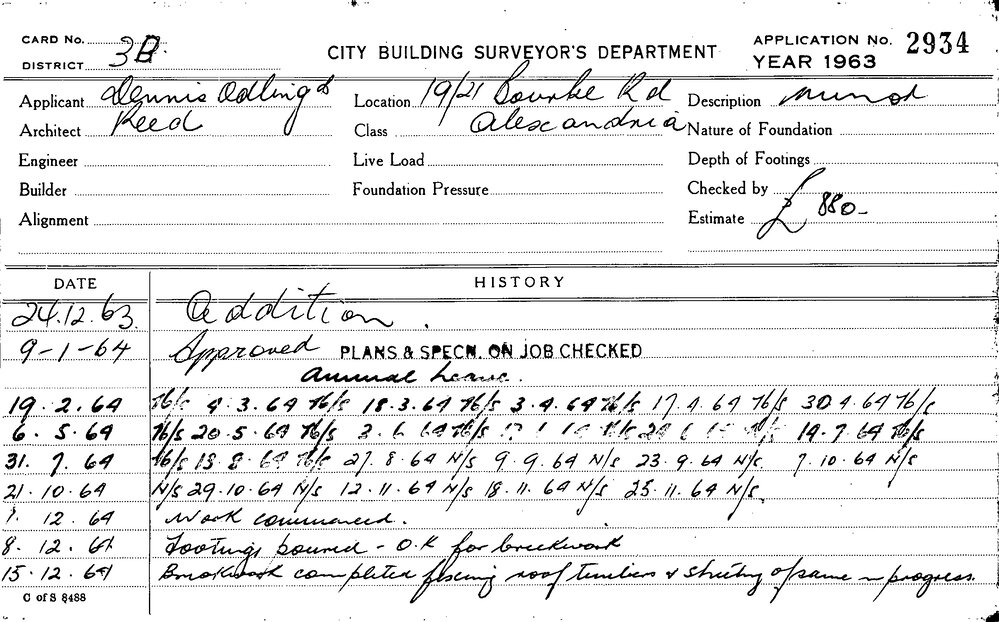 CARD No. 3B.
DISTRICT
CITY BUILDING SURVEYOR'S DEPARTMENT
APPLICATION No. 2934
YEAR 1963
Applicant Dennis Odling &
Architect Reed
Engineer
Builder
Alignment
Location 19/21 Bourke Rd
Class Alexandria
Live Load
Foundation Pressure
Description Minor
Nature of Foundation
Depth of Footings
Checked by
Estimate £ 880-
DATE HISTORY
24.12.63. Addition.
9-1-64 Approved PLANS & SPECN. ON JOB CHECKED
Annual Leave.
19.2.64 N/S 4.3.64 N/S 18.3.64 N/S 3.4.64 N/S 17.4.64 N/S 30.4.64 N/S
6.5.64 N/S 20.5.64 N/S 3.6.64 N/S N/S N/S 14.7.64 N/S
31.7.64 N/S 13.8.64 N/S 27.8.64 N/S 9.9.64 N/S 23.9.64 N/S. 7.10.64 N/S
21.10.64 N/S 29.10.64 N/S 12.11.64 N/S 18.11.64 N/S 25.11.64 N/S.
1.12.64 Work commenced.
8.12.64 Footings poured - O.K for brickwork
15.12.64 Brickwork completed fixing roof timbers & sheeting of same in progress.
C of S 8488